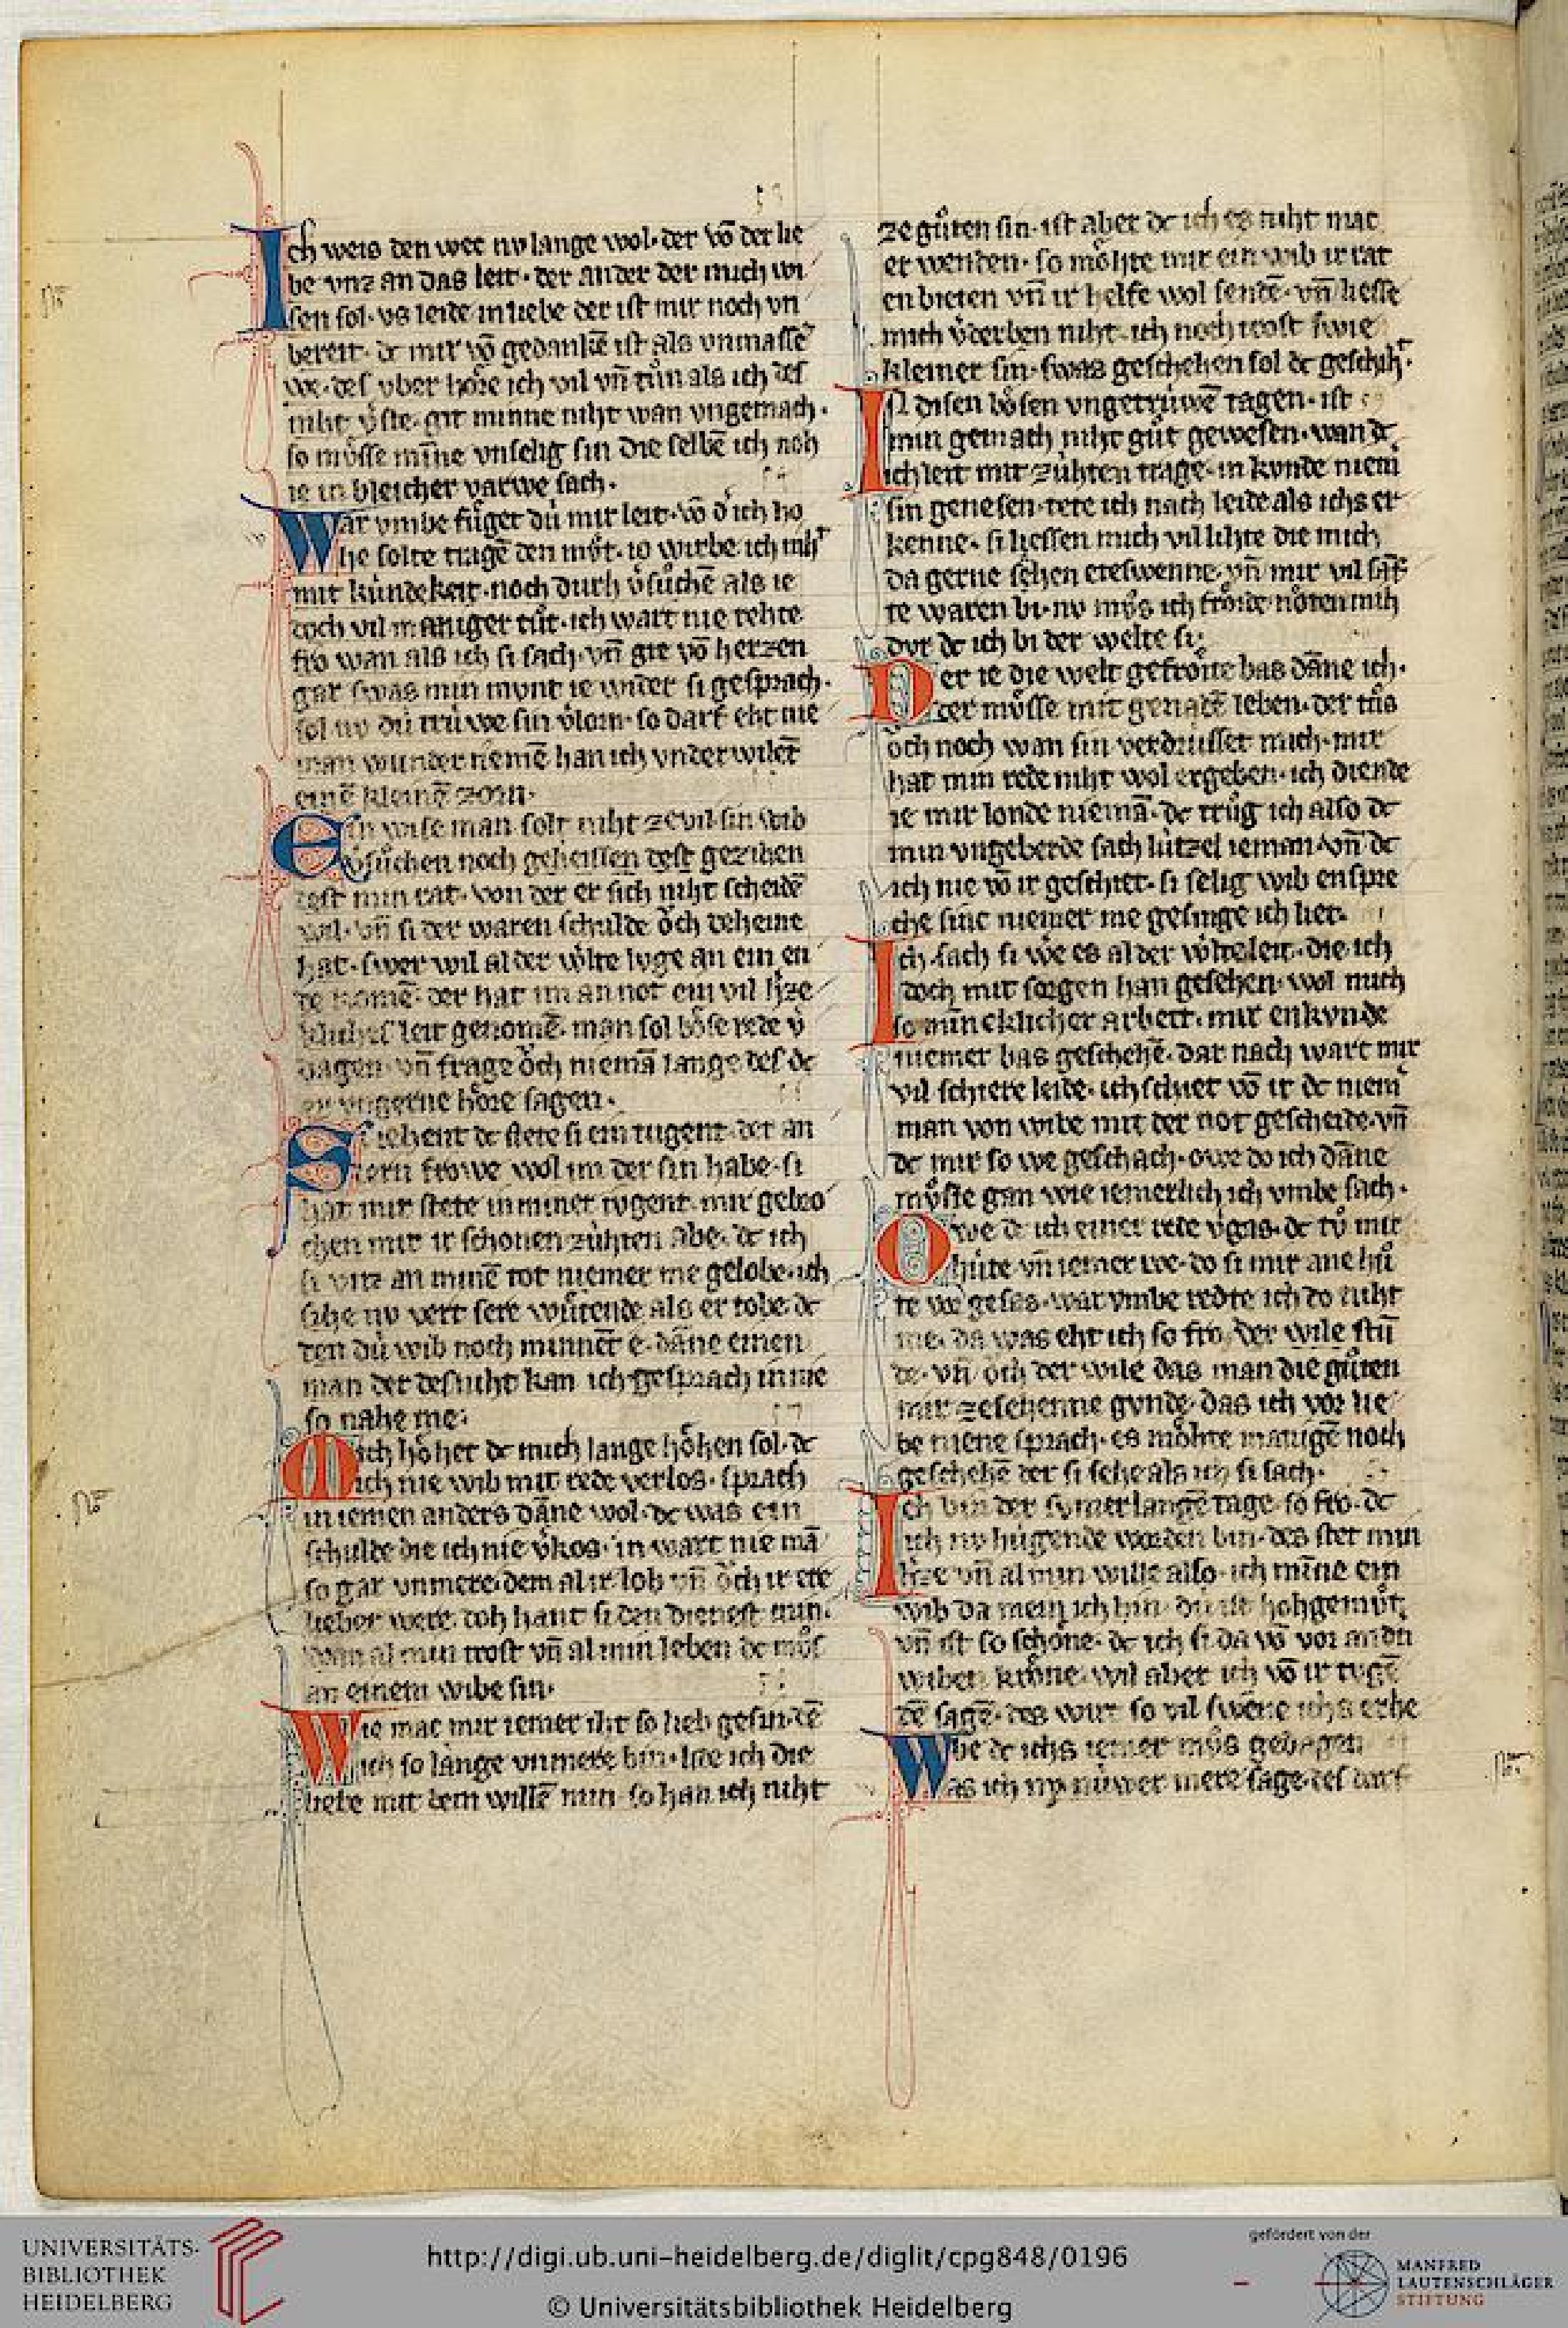 Ich weis den wec nv lange wol · der võ der lie
be vnz an das leit · der ander der mich wi
sen sol · vs leide in liebe der ist mir noch vn
bereit · dc mir võ gedankẽ ist als vnmasse
we · des vber hoͤre ich vil vñ tuͦn als ich des
niht v̾ste · git minne niht wan vngemach ·
so muͤsse mĩne vnselig sin die selbẽ ich noh
ie in bleicher varwe sach ·
War vmbe fuͤget dú mir leit · võ d̾ ich ho
he solte tragẽ den muͦt · io wirbe ich niht
mit kúndekeit · noch durh v̾suͦchẽ als ie
doch vil maniger tuͦt · ich wart nie rehte
fro wan als ich si sach · vñ gie võ herzen
gar swas min mvnt ie wider si gesprach ·
sol nv dú trúwe sin v̾lorn · so darf eht nie
man wunder nemẽ han ich vnderwilẽt
einẽ kleinẽ zorn ·
Ein wise man solt niht ze vil · sin wib
v̾suͦchen noch geheissen dest gezihen
dest min rat · von der er sich niht scheidẽ
wil · vñ si der waren schulde oͮch deheine
hat · swer wil al der wͤlte lvge an ein en
de komẽ · der hat im an not ein vil h̾ze
kliches leit genomẽ · man sol boͤse rede v̾
dagen · vñ frage oͮch niemã lange des dc
er vngerne hoͤre sagen ·
Si iehent dc stete si ein tugent · der an
dern frowe wol im der sin habe · si
hat mir stete in miner tvgent · mir gebro
chen mit ir schonen zúhten abe · dc ich
si vnz an minẽ tot niemer me gelobe · ich
sihe nv wert sere wuͤtende als er tobe · dc
den dú wib noch minnẽt e · dãne einen
man der des niht kan ich gesprach in nie
so nahe me ·
Mich hoͤhet dc mich lange hoͤhen sol · dc
ich nie wib mit rede verlos · sprach
in iemen anders dãne wol · dc was ein
schulde die ich nie v̾kos · in wart nie mã
so gar vnmere · dem al ir lob vñ oͮch ir ere
lieber were · doh hant si den dienest min ·
wan al min trost vñ al min leben dc muͦs
an einem wibe sin ·
Wie mac mir iemer iht so lieb gesin · dẽ
ich so lange vnmere bin · lide ich die
liebe mit dem willẽ min so han ich niht
ze guͦten sin · ist aber dc ich es niht mac
erwenden · so moͤhte mir ein wib ir rat
enbieten vñ ir helfe wol sendẽ · vñ liesse
mich v̾derben niht · ich noch trost swie
kleiner sin · swas geschehen sol dc geschiht ·
In disen boͤsen vngetrúwẽ tagen · ist
min gemach niht guͦt gewesen · wan dc
ich leit mit zúhten trage · in kvnde niem̾
sin genesen · tete ich nach leide als ichs er
kenne · si liessen mich vil lihte die mich
da gerne sehen eteswenne · vñ mir vil sãf
te waren bi · nv muͦs ich froͤide noͤten mih
dvr dc ich bi der welte si ·
Der ie die welt gefroͤite bas dãne ich ·
der muͤsse mit genadẽ leben · der tuͦs
oͮch noch wan sin verdrússet mich · mir
hat min rede niht wol ergeben · ich diende
ie mir londe niemã · dc truͦg ich also dc
min vngeberde sach lútzel ieman vñ dc
ich nie võ ir geschiet · si selig wib enspre
che sinc niemer me gesinge ich liet ·
Ich sach si we es al der wͤlte leit · die ich
doch mit sorgen han gesehen · wol mich
so mĩneklicher arbeit · mir enkvnde
niemer bas geschehẽ · dar nach wart mir
vil schiere leide · ich schiet võ ir dc niem
man von wibe mit der not gescheide · vñ
dc mir so we geschach · owe do ich dãne
muͤste gan wie iemerlich ich vmbe sach ·
Owe dc ich einer rede v̾gas · dc tuͦ mir
húte vñ iemer we · do si mir ane huͦ
te vor gesas · war vmbe redte ich do niht
me · da was eht ich so fro · der wile stũ
de · vñ oͮch der wile das man die guͦten
mir ze sehenne gvnde · das ich vor lie
be niene sprach · es moͤhte manigẽ noch
geschehẽ der si sehe als ich si sach ·
Ich bin der svmerlangẽ tage so fro · dc
ich nv húgende worden bin · des stet min
h̾ze vñ al min wille also · ich mĩne ein
wib da mein ich hin · dú ist hohgemuͦt
vñ ist so schoͤne · dc ich si da võ vor andn̾
wiben kroͤne · wil aber ich võ ir tvgẽ
dẽ sagẽ · des wirt so vil swenne ichs erhe
be dc ichs iemer muͦs gedagen
Was ich nv núwer mere sage · des darf
UNIVERSITÄTS-
BIBLIOTHEK
HEIDELBERG
http://digi.ub.uni-heidelberg.de/diglit/cpg848/0196
© Universitätsbibliothek Heidelberg
gefördert von der
MANFRED
LAUTENSCHLÄGER
STIFTUNG